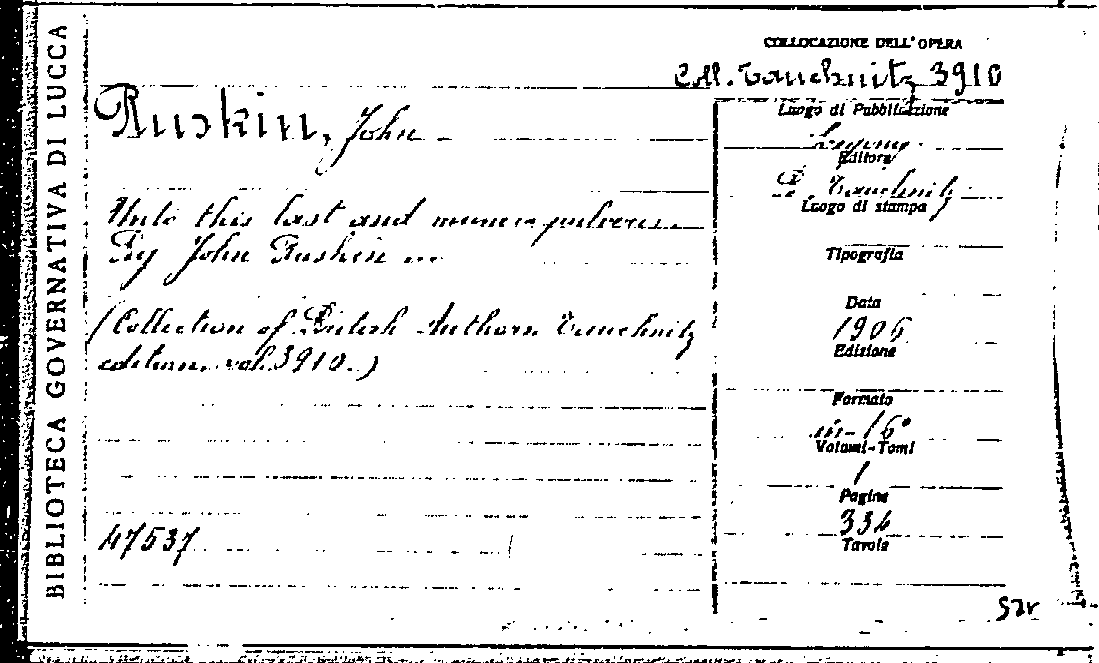 BIBLIOTECA GOVERNATIVA DI LUCCA
COLLOCAZIONE DELL'OPERA
Coll. Tauchnitz 3910
Ruskin, John
Unto this last and munera pulveris.
By John Ruskin ...
(Collection of British Authors Tauchnitz
edition. vol. 3910.)
47537
Luogo di Pubblicazione
Editore
B. Tauchnitz
Luogo di stampa
Tipografia
Data
1906
Edizione
Formato
in-16°
Volumi-Tomi
1
Pagine
334
Tavole